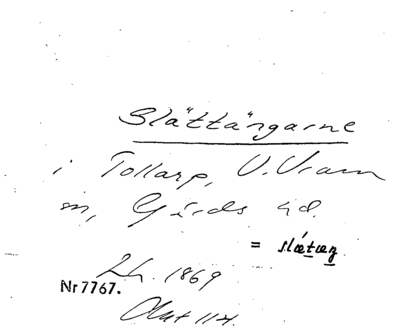 Slättängarne
i Tollarp, V. Vram
sn, Gärds hd.
= slætæŋ
Lh. 1869
Nr 7767.
Akt 114.